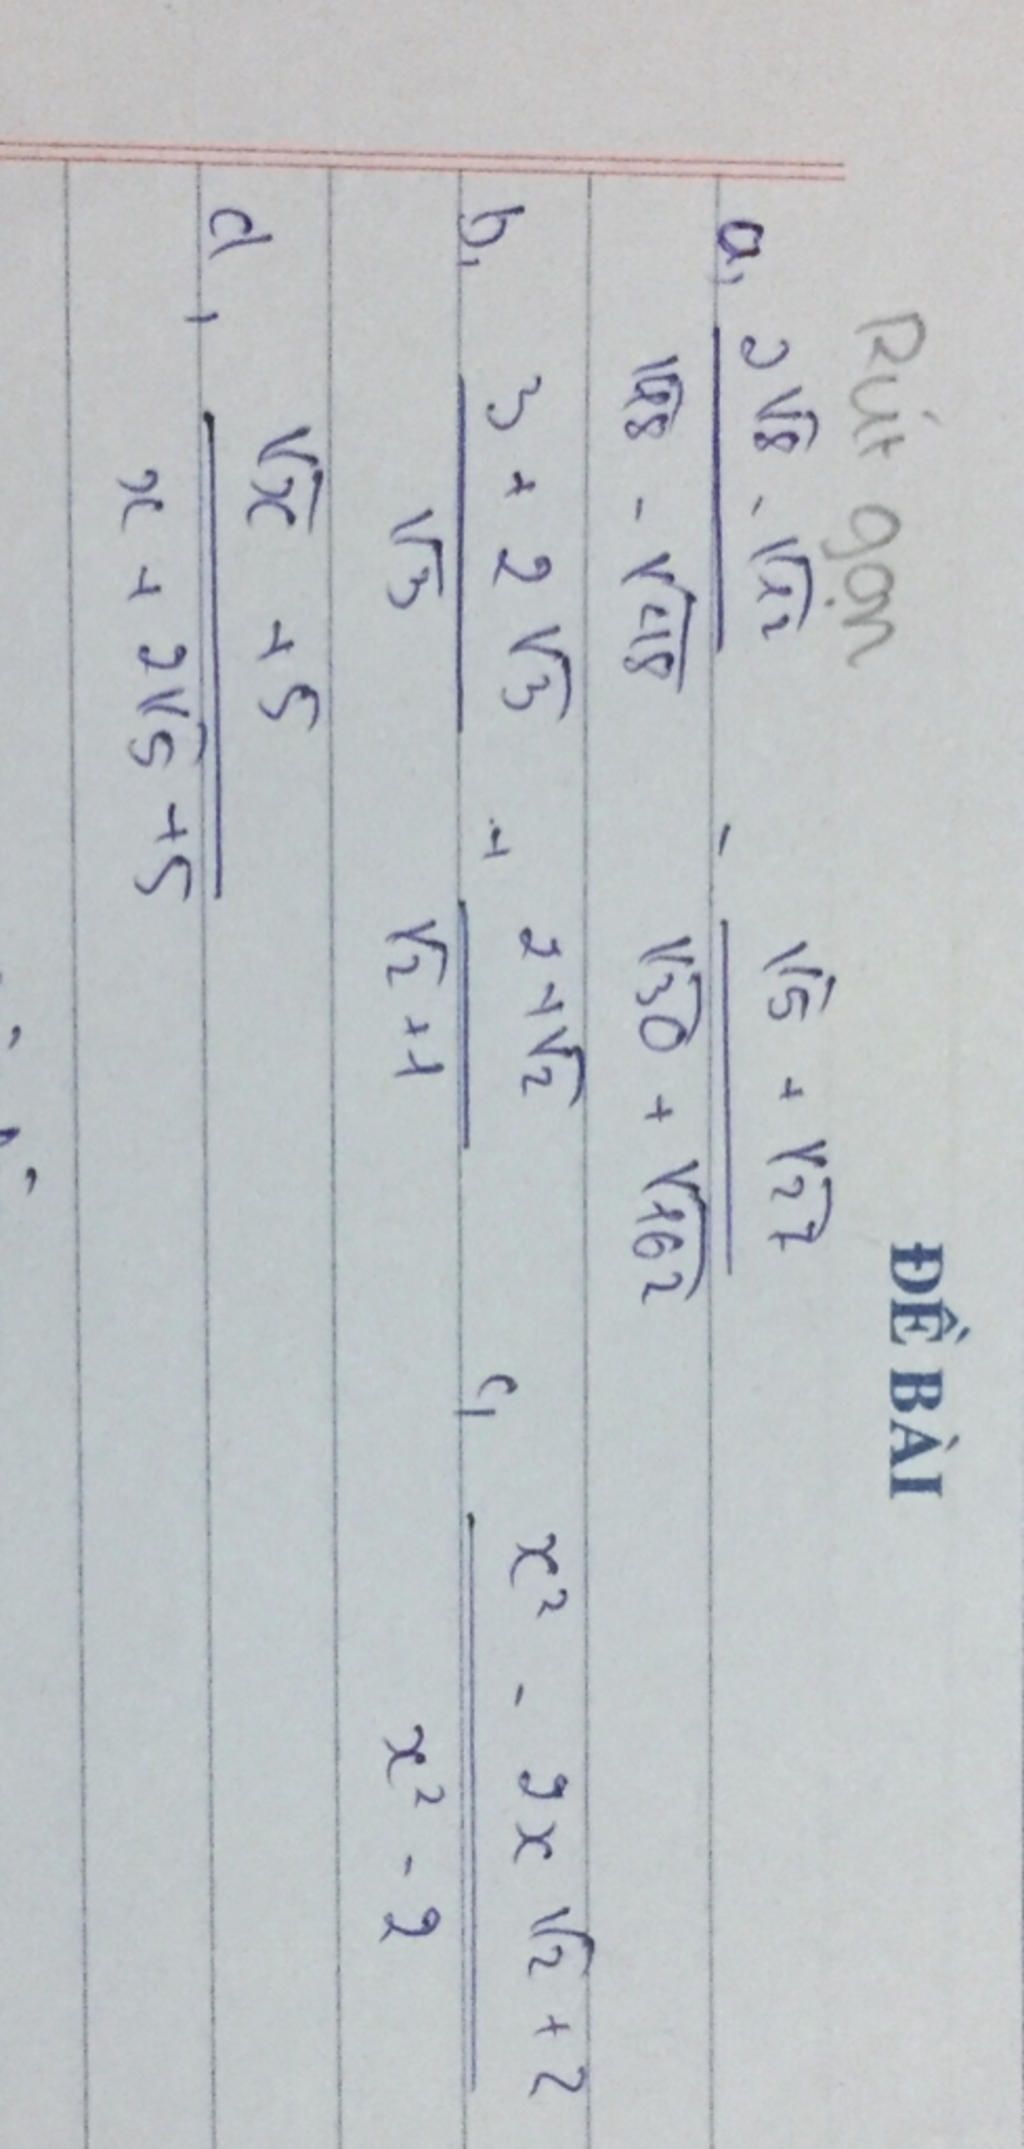 ĐỀ BÀI
Rút gọn
a, (2√8 - √12) / (√18 - √48) - (√5 + √27) / (√30 + √162)
b, (3 + 2√3) / √3 + (2 + √2) / (√2 + 1) c, (x² - 2x√2 + 2) / (x² - 2)
d, (√x + 5) / (x + 2√5 + 5)